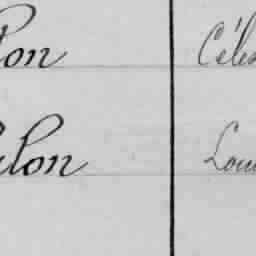 lon Céles
ulon Loui